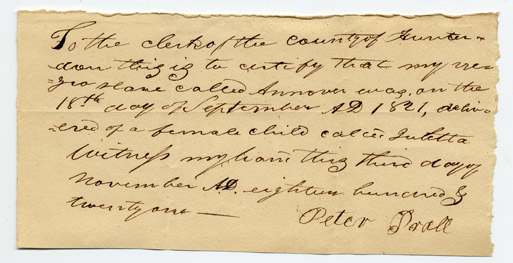 To the clerk of the county of Hunter=
don this is to certify that my ne
gro slave called Annover was, on the
18th day of September AD 1821, deliv
=ered of a female child called Juletta
Witness my hand this third day of
November AD. eighteen hundred &
twenty one —
Peter Prall